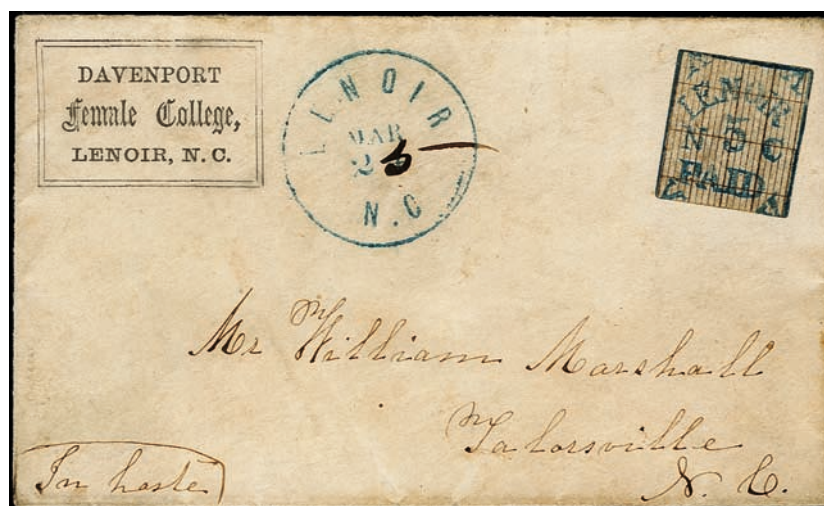 DAVENPORT
Female College,
LENOIR, N. C.
LENOIR
MAR
25
N.C
LENOIR
N 5 C
PAID
Mr William Marshall
Talorsville
N. C.
In haste